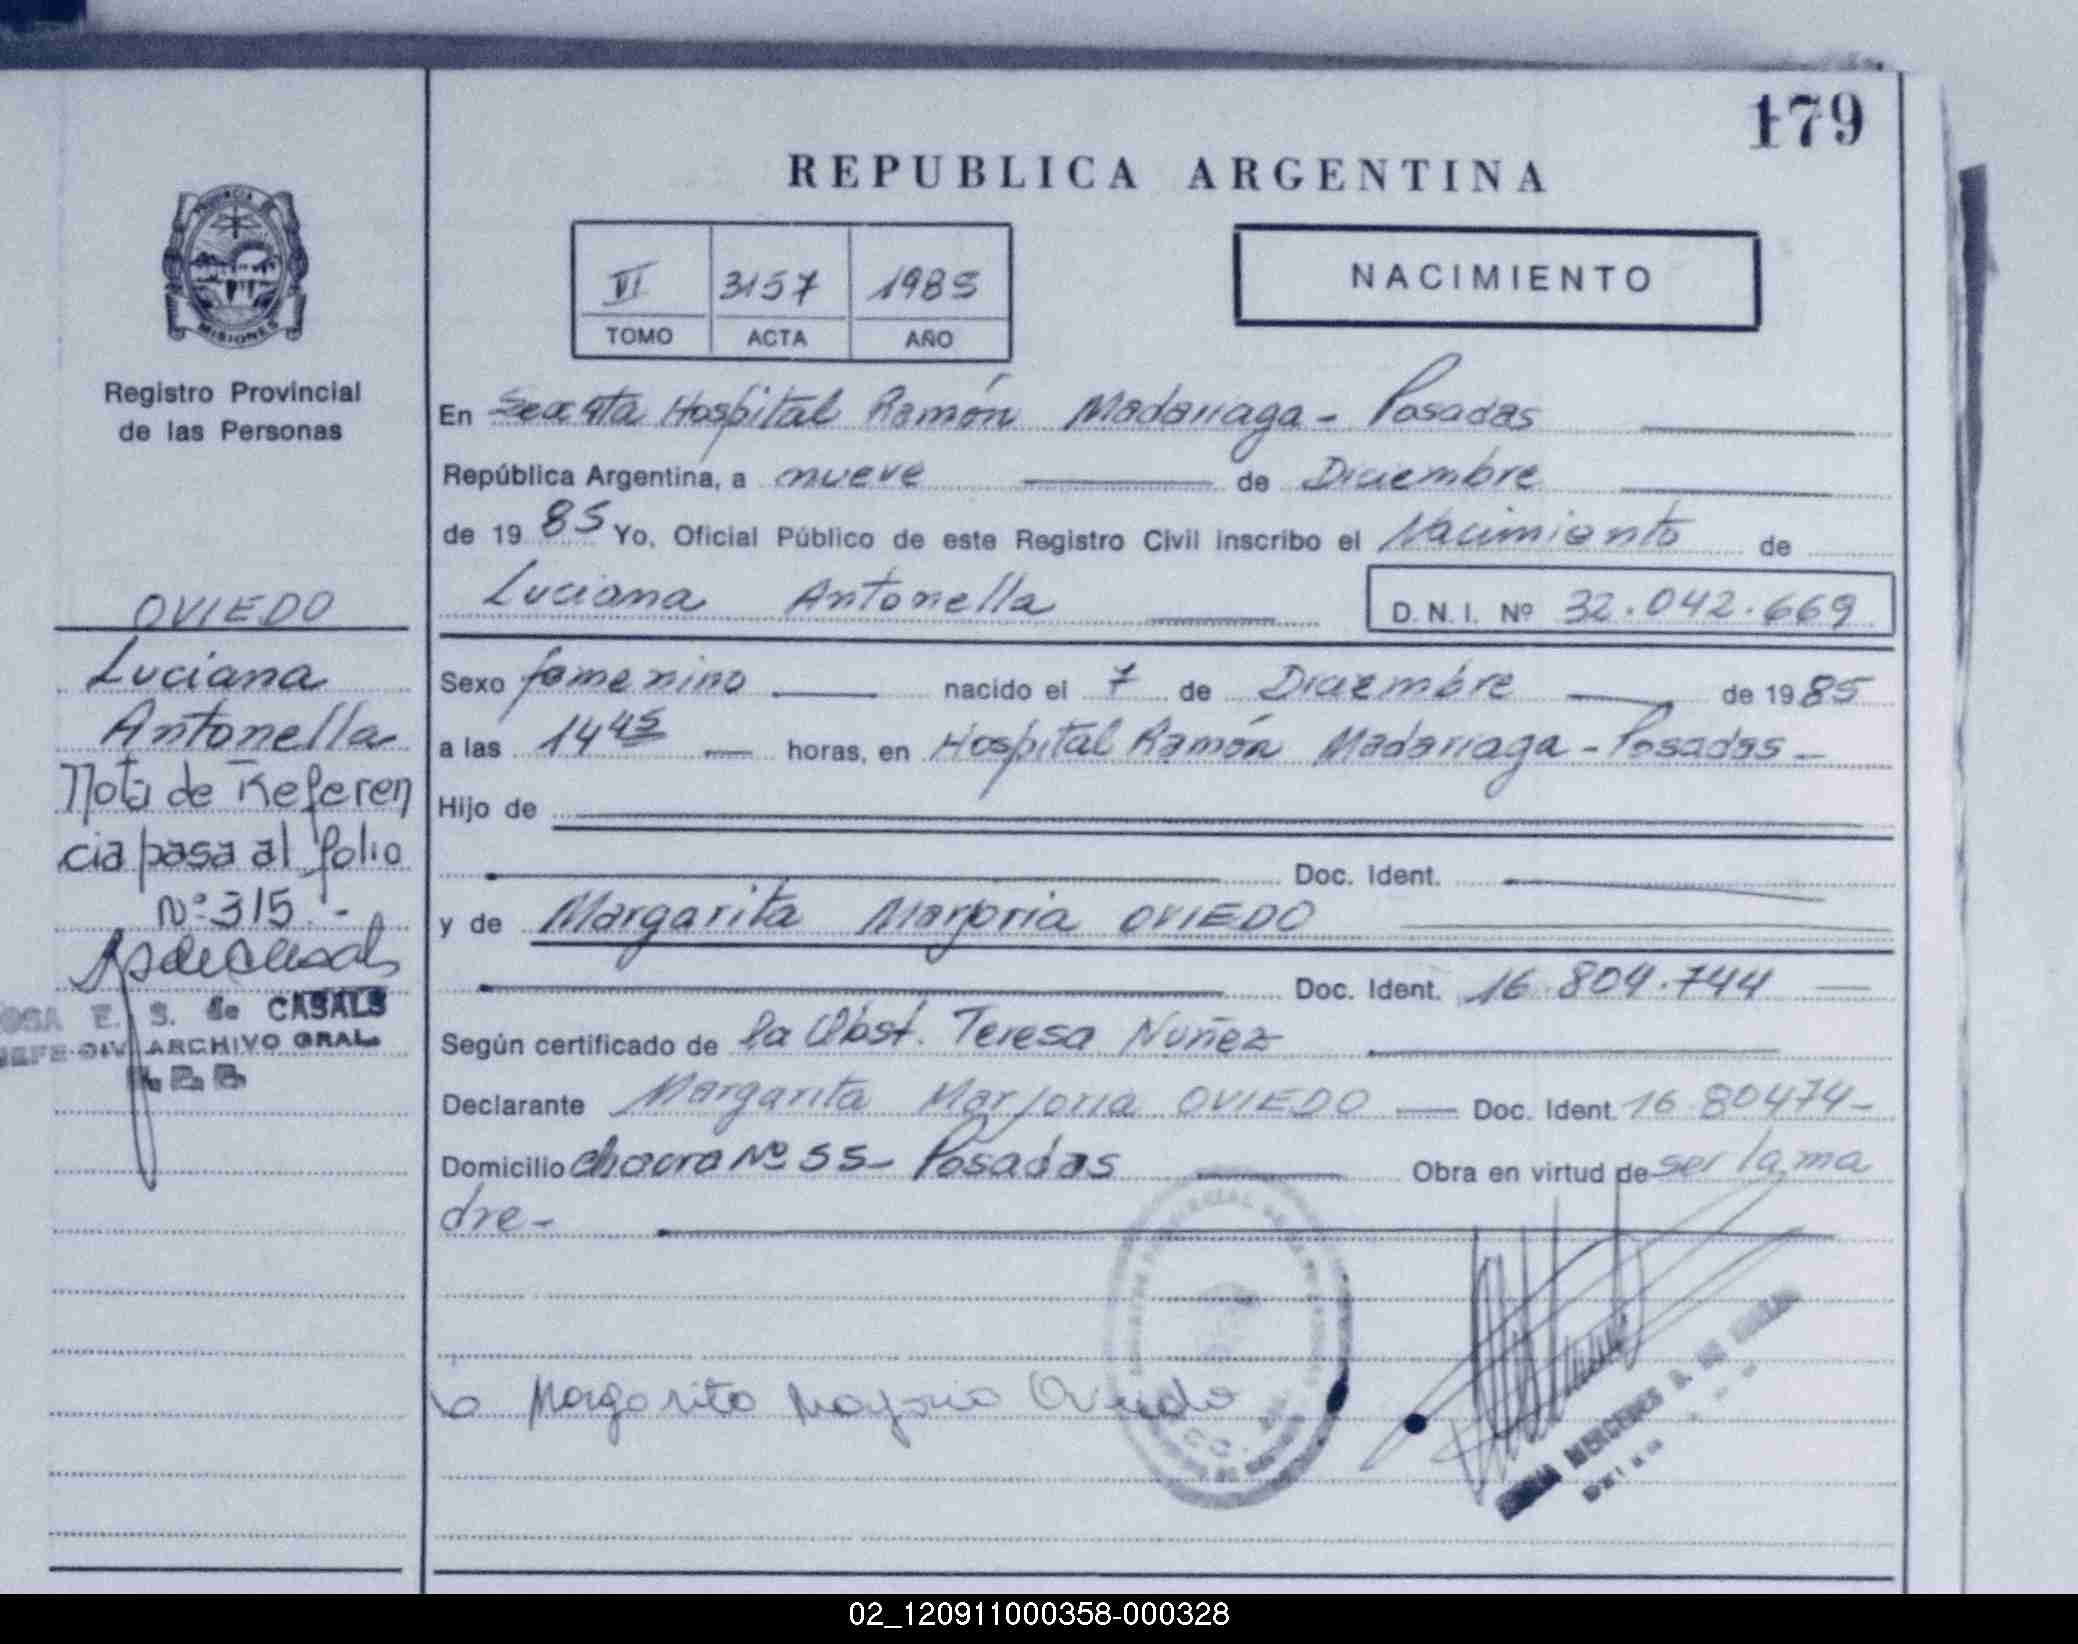 179
REPUBLICA ARGENTINA
PROVINCIA DE
MISIONES
Registro Provincial
de las Personas
VI 3157 1985
TOMO ACTA AÑO
NACIMIENTO
En Hospital Ramón Madariaga - Posadas
República Argentina, a nueve de Diciembre
de 19 85 Yo, Oficial Público de este Registro Civil inscribo el Nacimiento de
Luciana Antonella D. N. I. Nº 32.042.669
OVIEDO
Luciana
Antonella
Nota de Referen
cia pasa al folio
Nº 315.-
E. S. de CASALS
JEFE DIV ARCHIVO GRAL
Sexo femenino nacido el 7 de Diciembre de 19 85
a las 14 45 horas, en Hospital Ramón Madariaga - Posadas -
Hijo de
Doc. Ident.
y de Margarita Marjoria OVIEDO
Doc. Ident. 16.804.744
Según certificado de la Obst. Teresa Nuñez
Declarante Margarita Marjoria OVIEDO Doc. Ident. 16 80474-
Domicilio chacra Nº 55- Posadas Obra en virtud de ser la ma
dre-
Margarita Marjoria Oviedo
MERCEDES
02_120911000358-000328